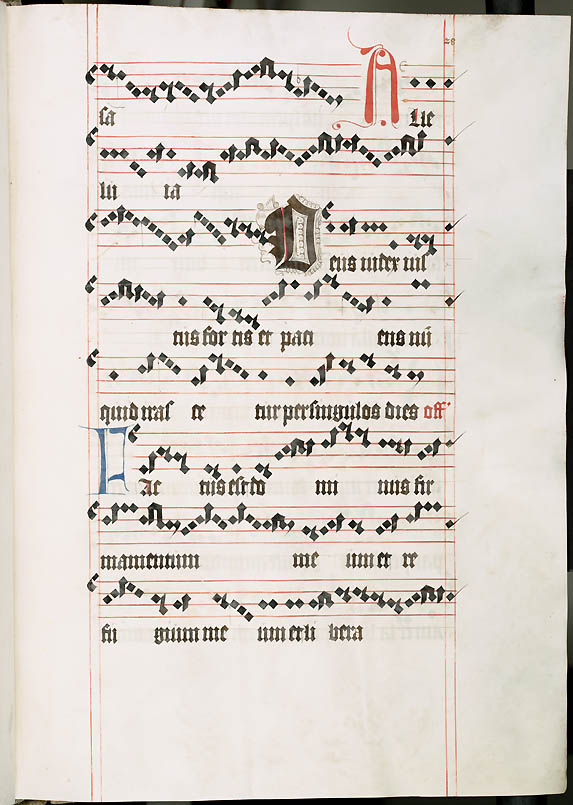 sa A lle
lu ia
Deus iudex ius
tus for tis et paci ens nu
quid iras ce tur per singulos dies off
Fac tus est do mi nus fir
mamentum me um et re
fu gium me um et li bera